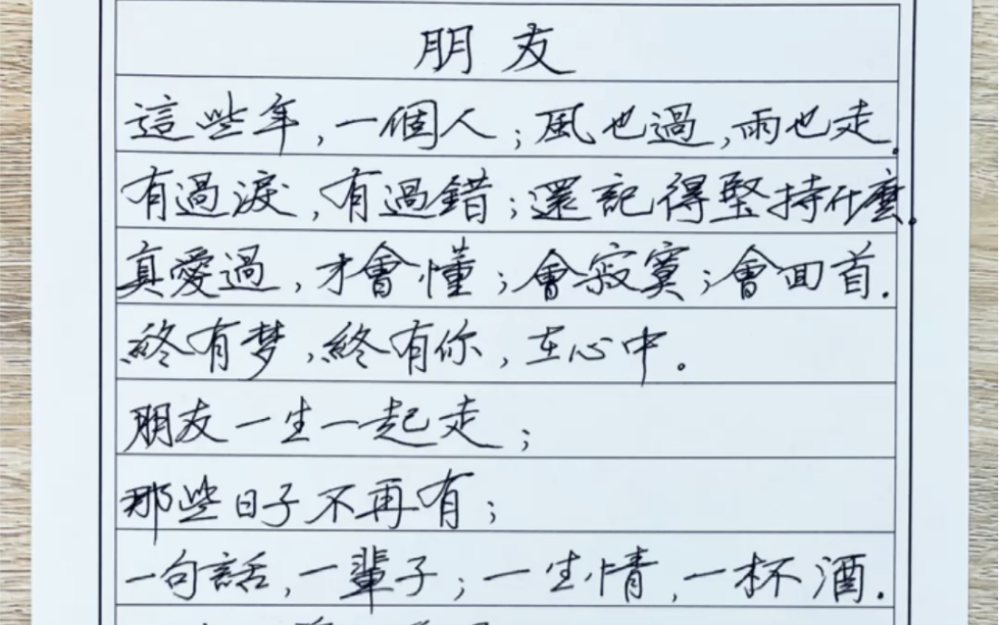 朋友
這些年,一個人;風也過,雨也走.
有過淚,有過錯;還記得堅持什麼.
真愛過,才會懂;會寂寞;會回首.
終有梦,終有你,在心中。
朋友一生一起走;
那些日子不再有;
一句話,一輩子;一生情,一杯酒.